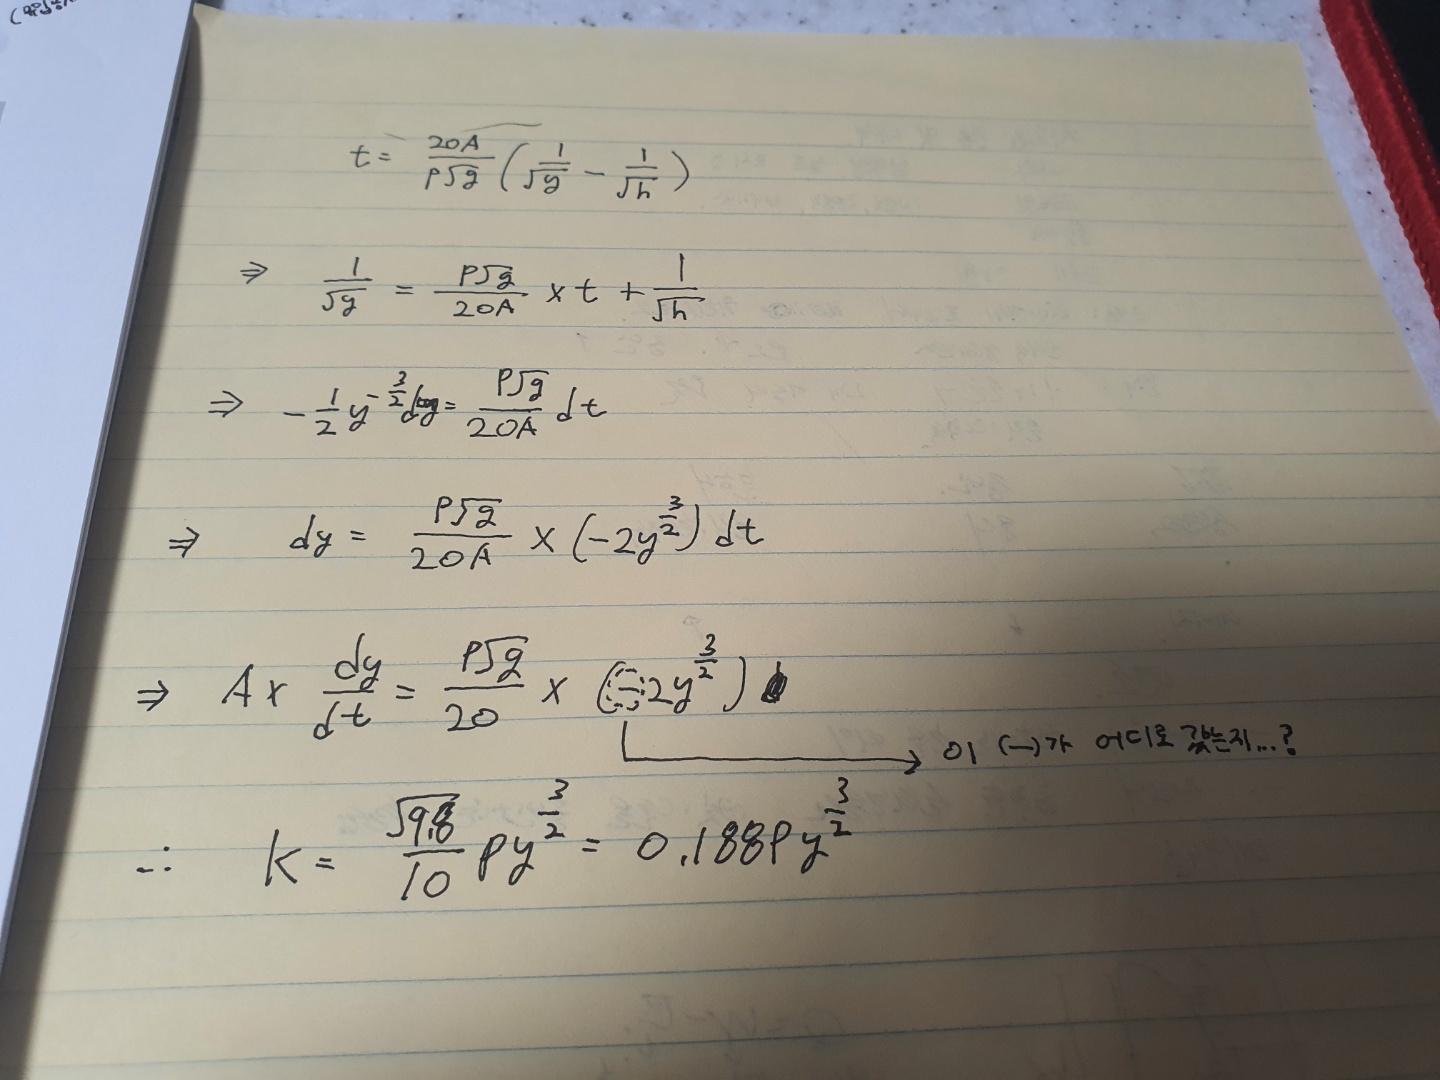 t = 20A / P√g ( 1/√y − 1/√h )
⇒ 1/√y = P√g / 20A × t + 1/√h
⇒ − 1/2 y^(−3/2) dy = P√g / 20A dt
⇒ dy = P√g / 20A × (−2y^(3/2)) dt
⇒ A × dy/dt = P√g / 20 × (−2y^(3/2))
이 (−)가 어디로 갔는지...?
∴ K = √9.8 / 10 Py^(3/2) = 0.188Py^(3/2)